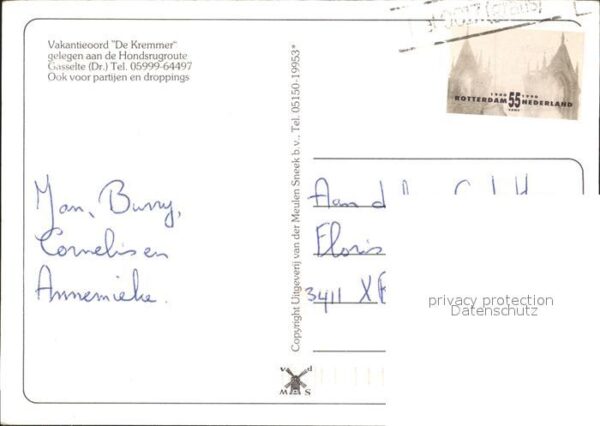 Vakantieoord "De Kremmer"
gelegen aan de Hondsrugroute
Gasselte (Dr.) Tel. 05999-64497
Ook voor partijen en droppings
1940 1990
ROTTERDAM 55 NEDERLAND
CENT
Copyright Uitgeverij van der Meulen Sneek b.v., Tel. 05150-19953*
Jan, Burry,
Cornelis en
Annemieke.
Aan d
Floris
3411 X
privacy protection
Datenschutz
v d
S W